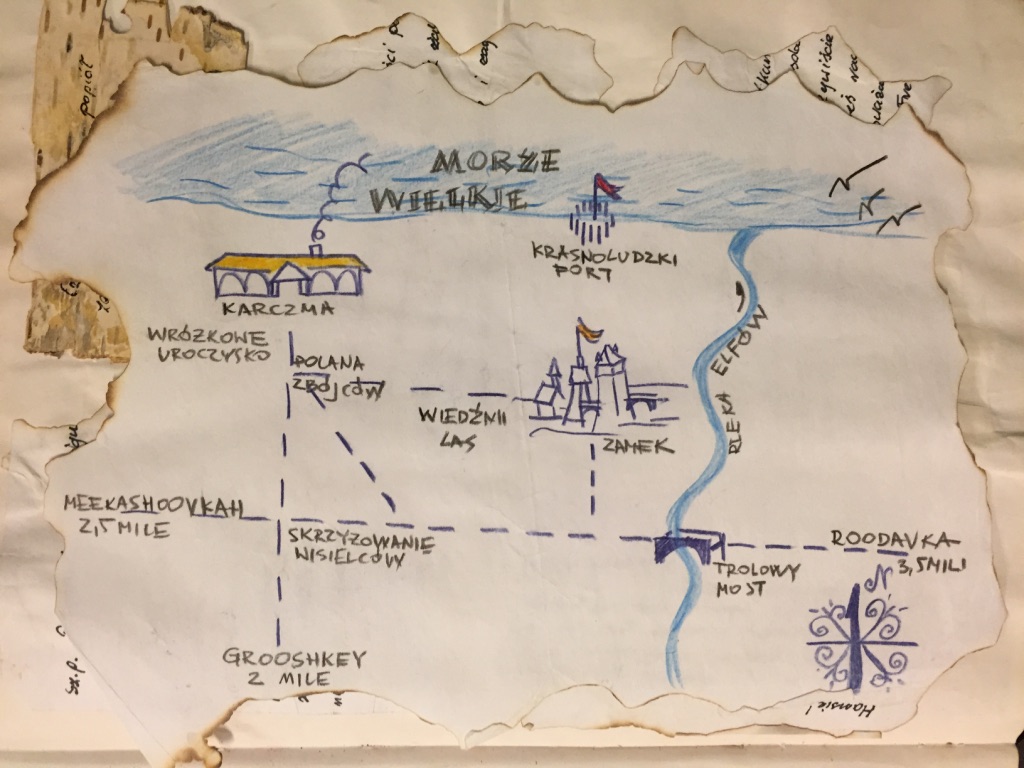 MORZE
WIELKIE
KRASNOLUDZKI
PORT
KARCZMA
WRÓZKOWE
UROCZYSKO
POLANA
ZBÓJCÓW
RZEKA ELFÓW
WIEDŹMI
LAS
ZAMEK
MEEKASHOOVKAH
2,5 MILE
SKRZYŻOWANIE
WISIELCÓW
ROODAVKA
3,5 MILI
TROLOWY
MOST
N
GROOSHKEY
2 MILE
popiół
Hansie!